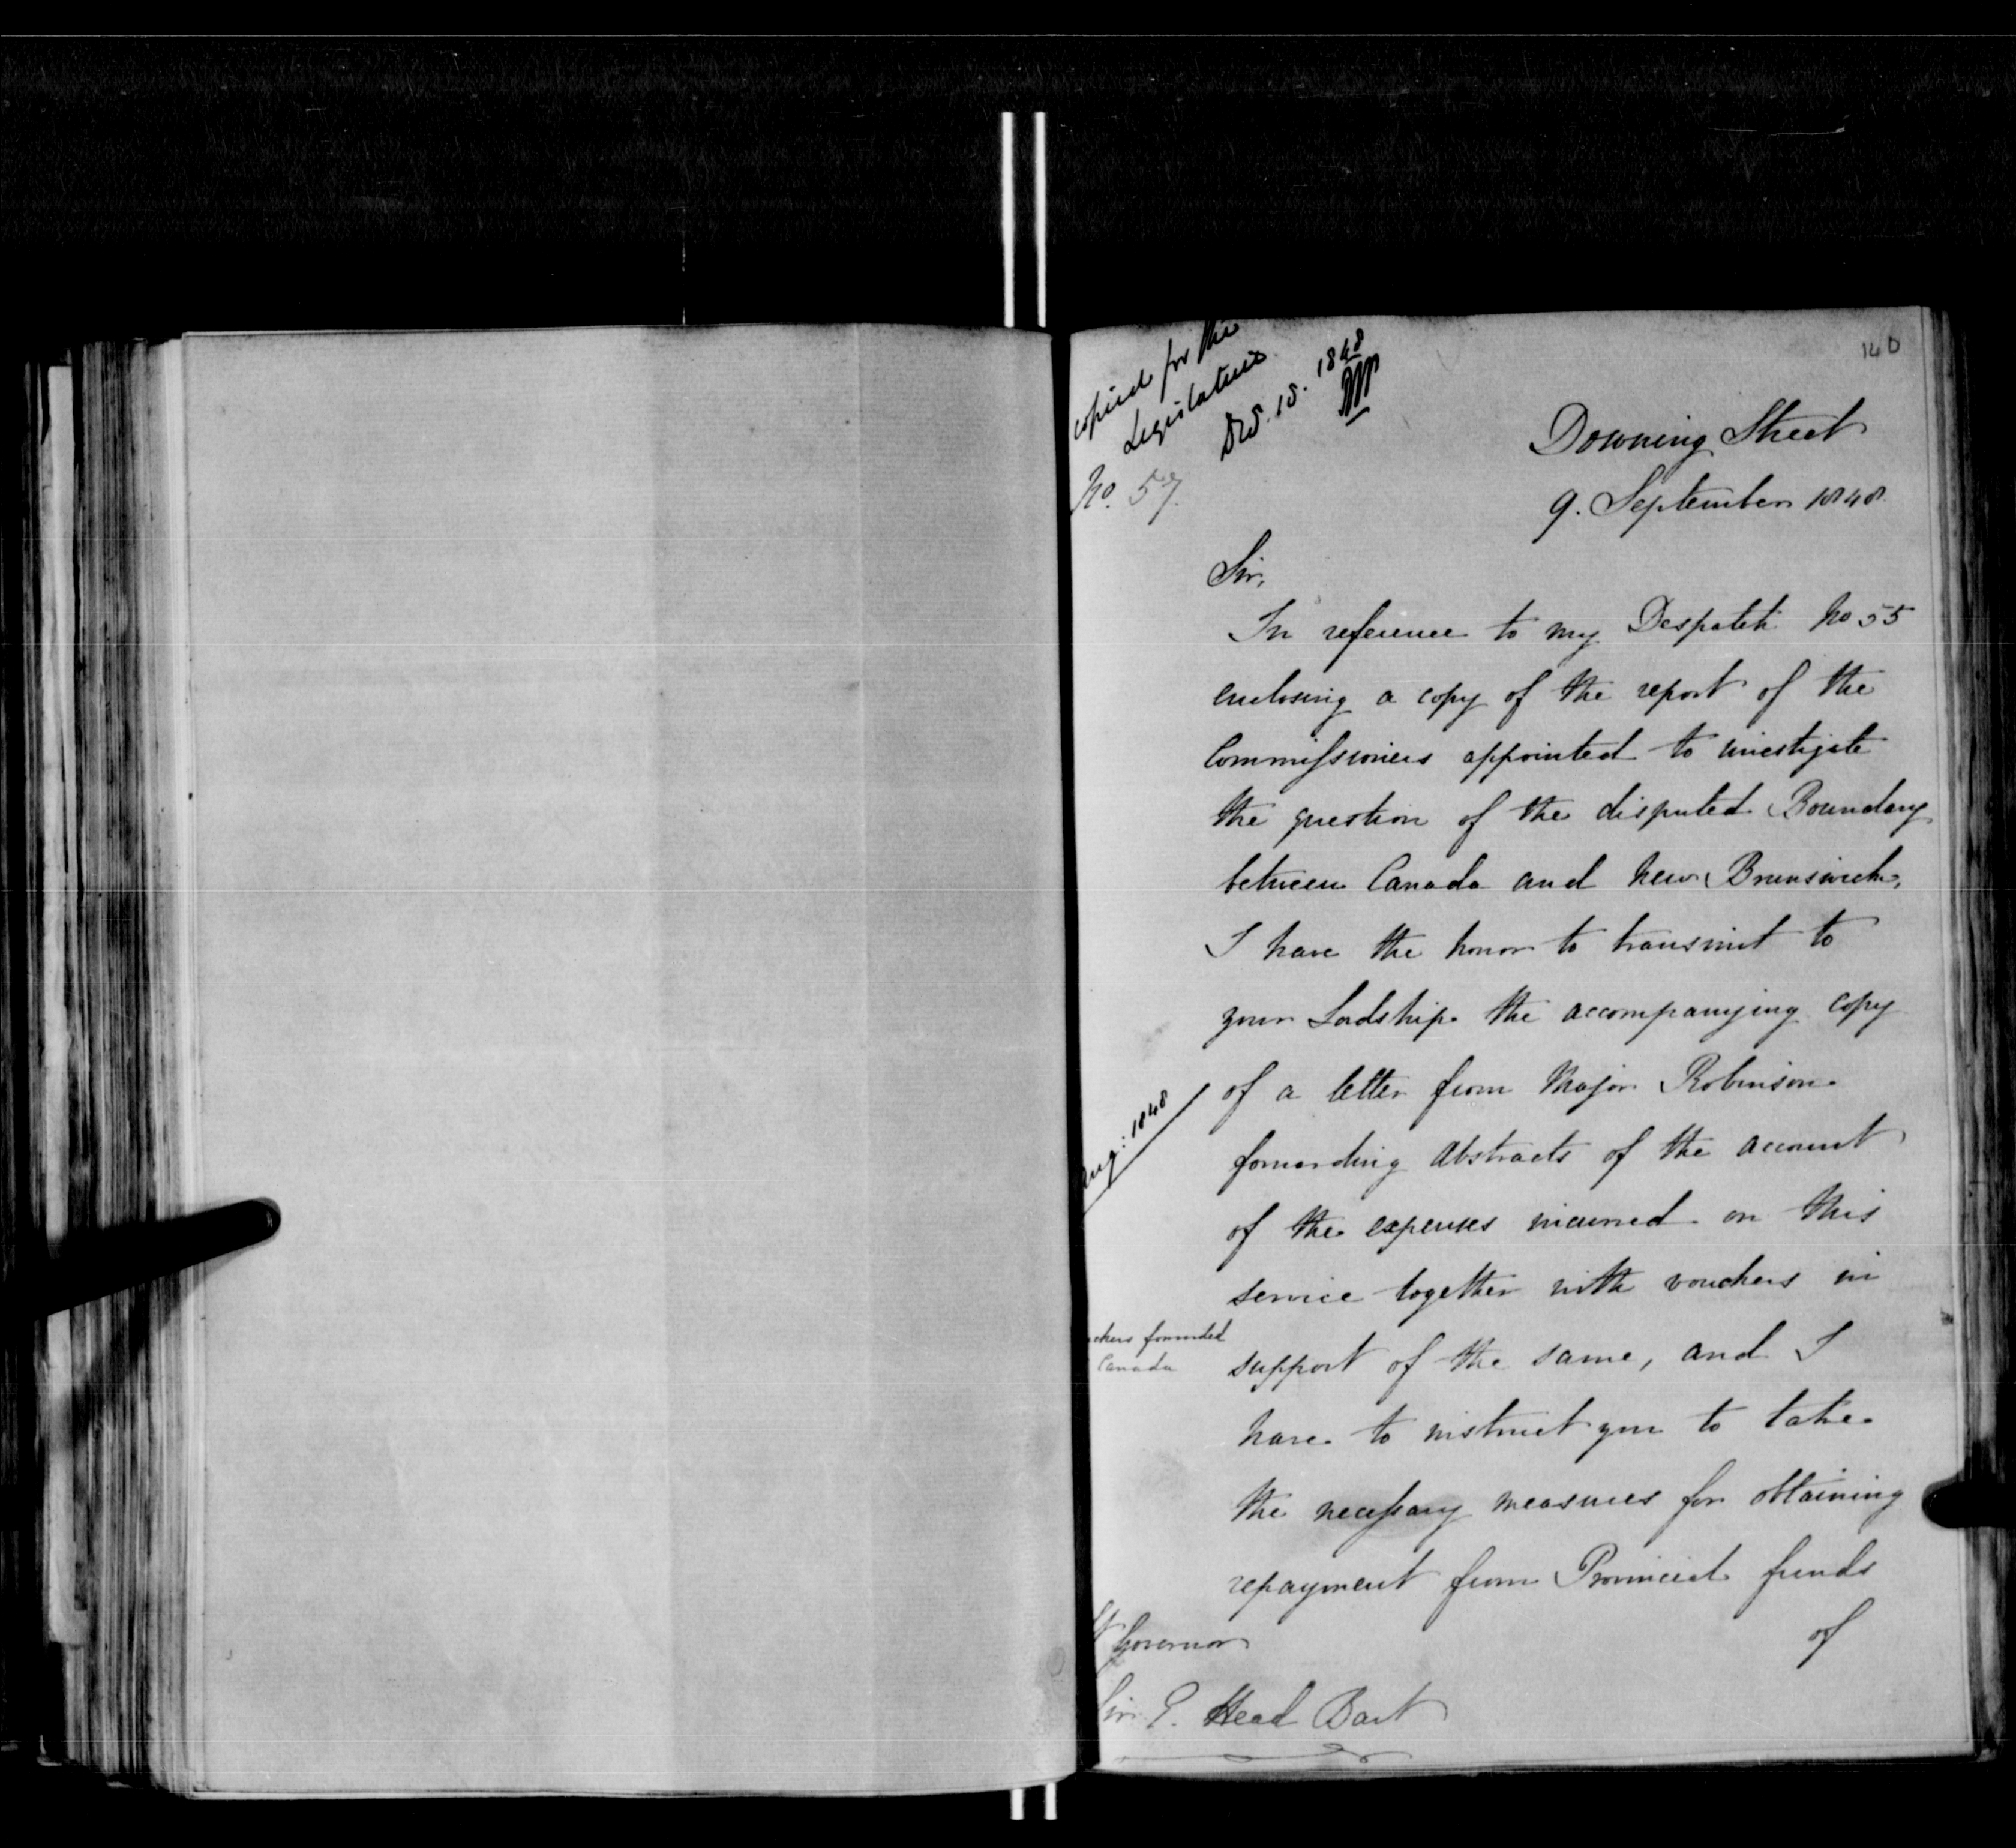 140
copied for the
Legislature
Dec. 15. 1848
No. 57.
Downing Street
9. September 1848
Sir,
In reference to my Despatch No 55
enclosing a copy of the report of the
Commissioners appointed to investigate
the question of the disputed Boundary
between Canada and New Brunswick,
I have the honor to transmit to
your Lordship the accompanying copy
of a letter from Major Robinson
Aug: 1848
forwarding Abstracts of the account
of the expenses incurred on this
service together with vouchers in
chers forwarded
Canada
support of the same, and I
have to instruct you to take
the necessary measures for obtaining
repayment from Provincial funds
of
Governor
Sir E. Head Bart